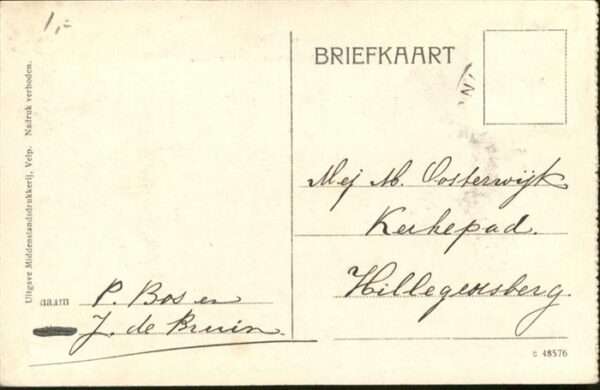 1,-
BRIEFKAART
Uitgave Middenstandsdrukkerij, Velp. Nadruk verboden.
Mej M. Oosterwijk
Kerkepad.
Hillegersberg.
naam P. Bos en
J. de Bruin.
48576